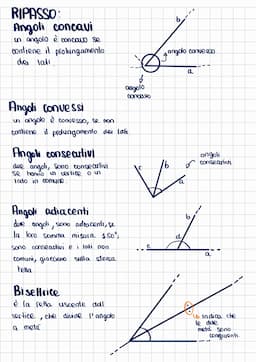 RIPASSO:
Angoli concavi
un angolo è concavo se
contiene il prolungamento
dei lati
b
angolo convesso
a
angolo
concavo
Angoli convessi
un angolo è convesso, se non
contiene il prolungamento dei lati.
Angoli consecutivi
due angoli, sono consecutivi
se hanno un vertice e un
lato in comune
c
b
a
angoli
consecutivi
Angoli adiacenti
due angoli, sono adiacenti, se
la loro somma misura 180°,
sono consecutivi e i lati non
comuni, giacciono sulla stessa
retta
b
d
c
a
Bisettrice
è la retta uscente dal
vertice, che divide l'angolo
a metà
indica che
le due
metà sono
congruenti.